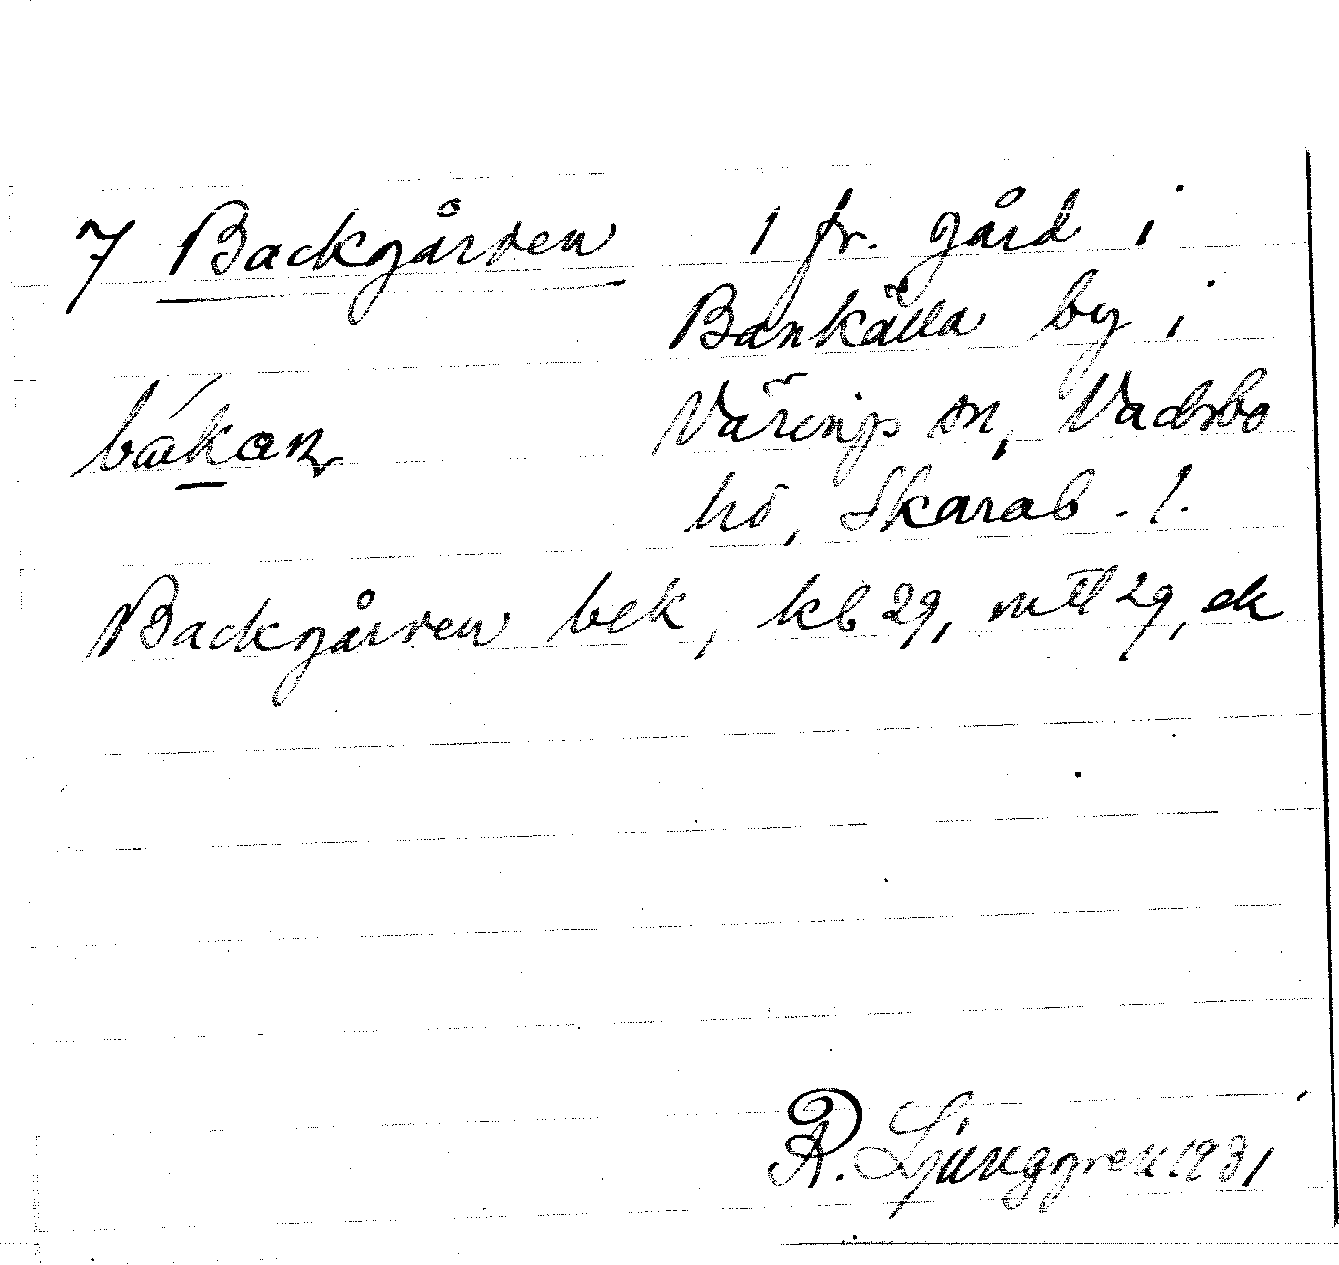 7 Backgården 1 fr. gård i
Bankälla by i
Värings sn, Vadsbo
hd, Skarab. l.
Backgården bek, kb 29, mtl 29, ek
R. Ljunggren 1931